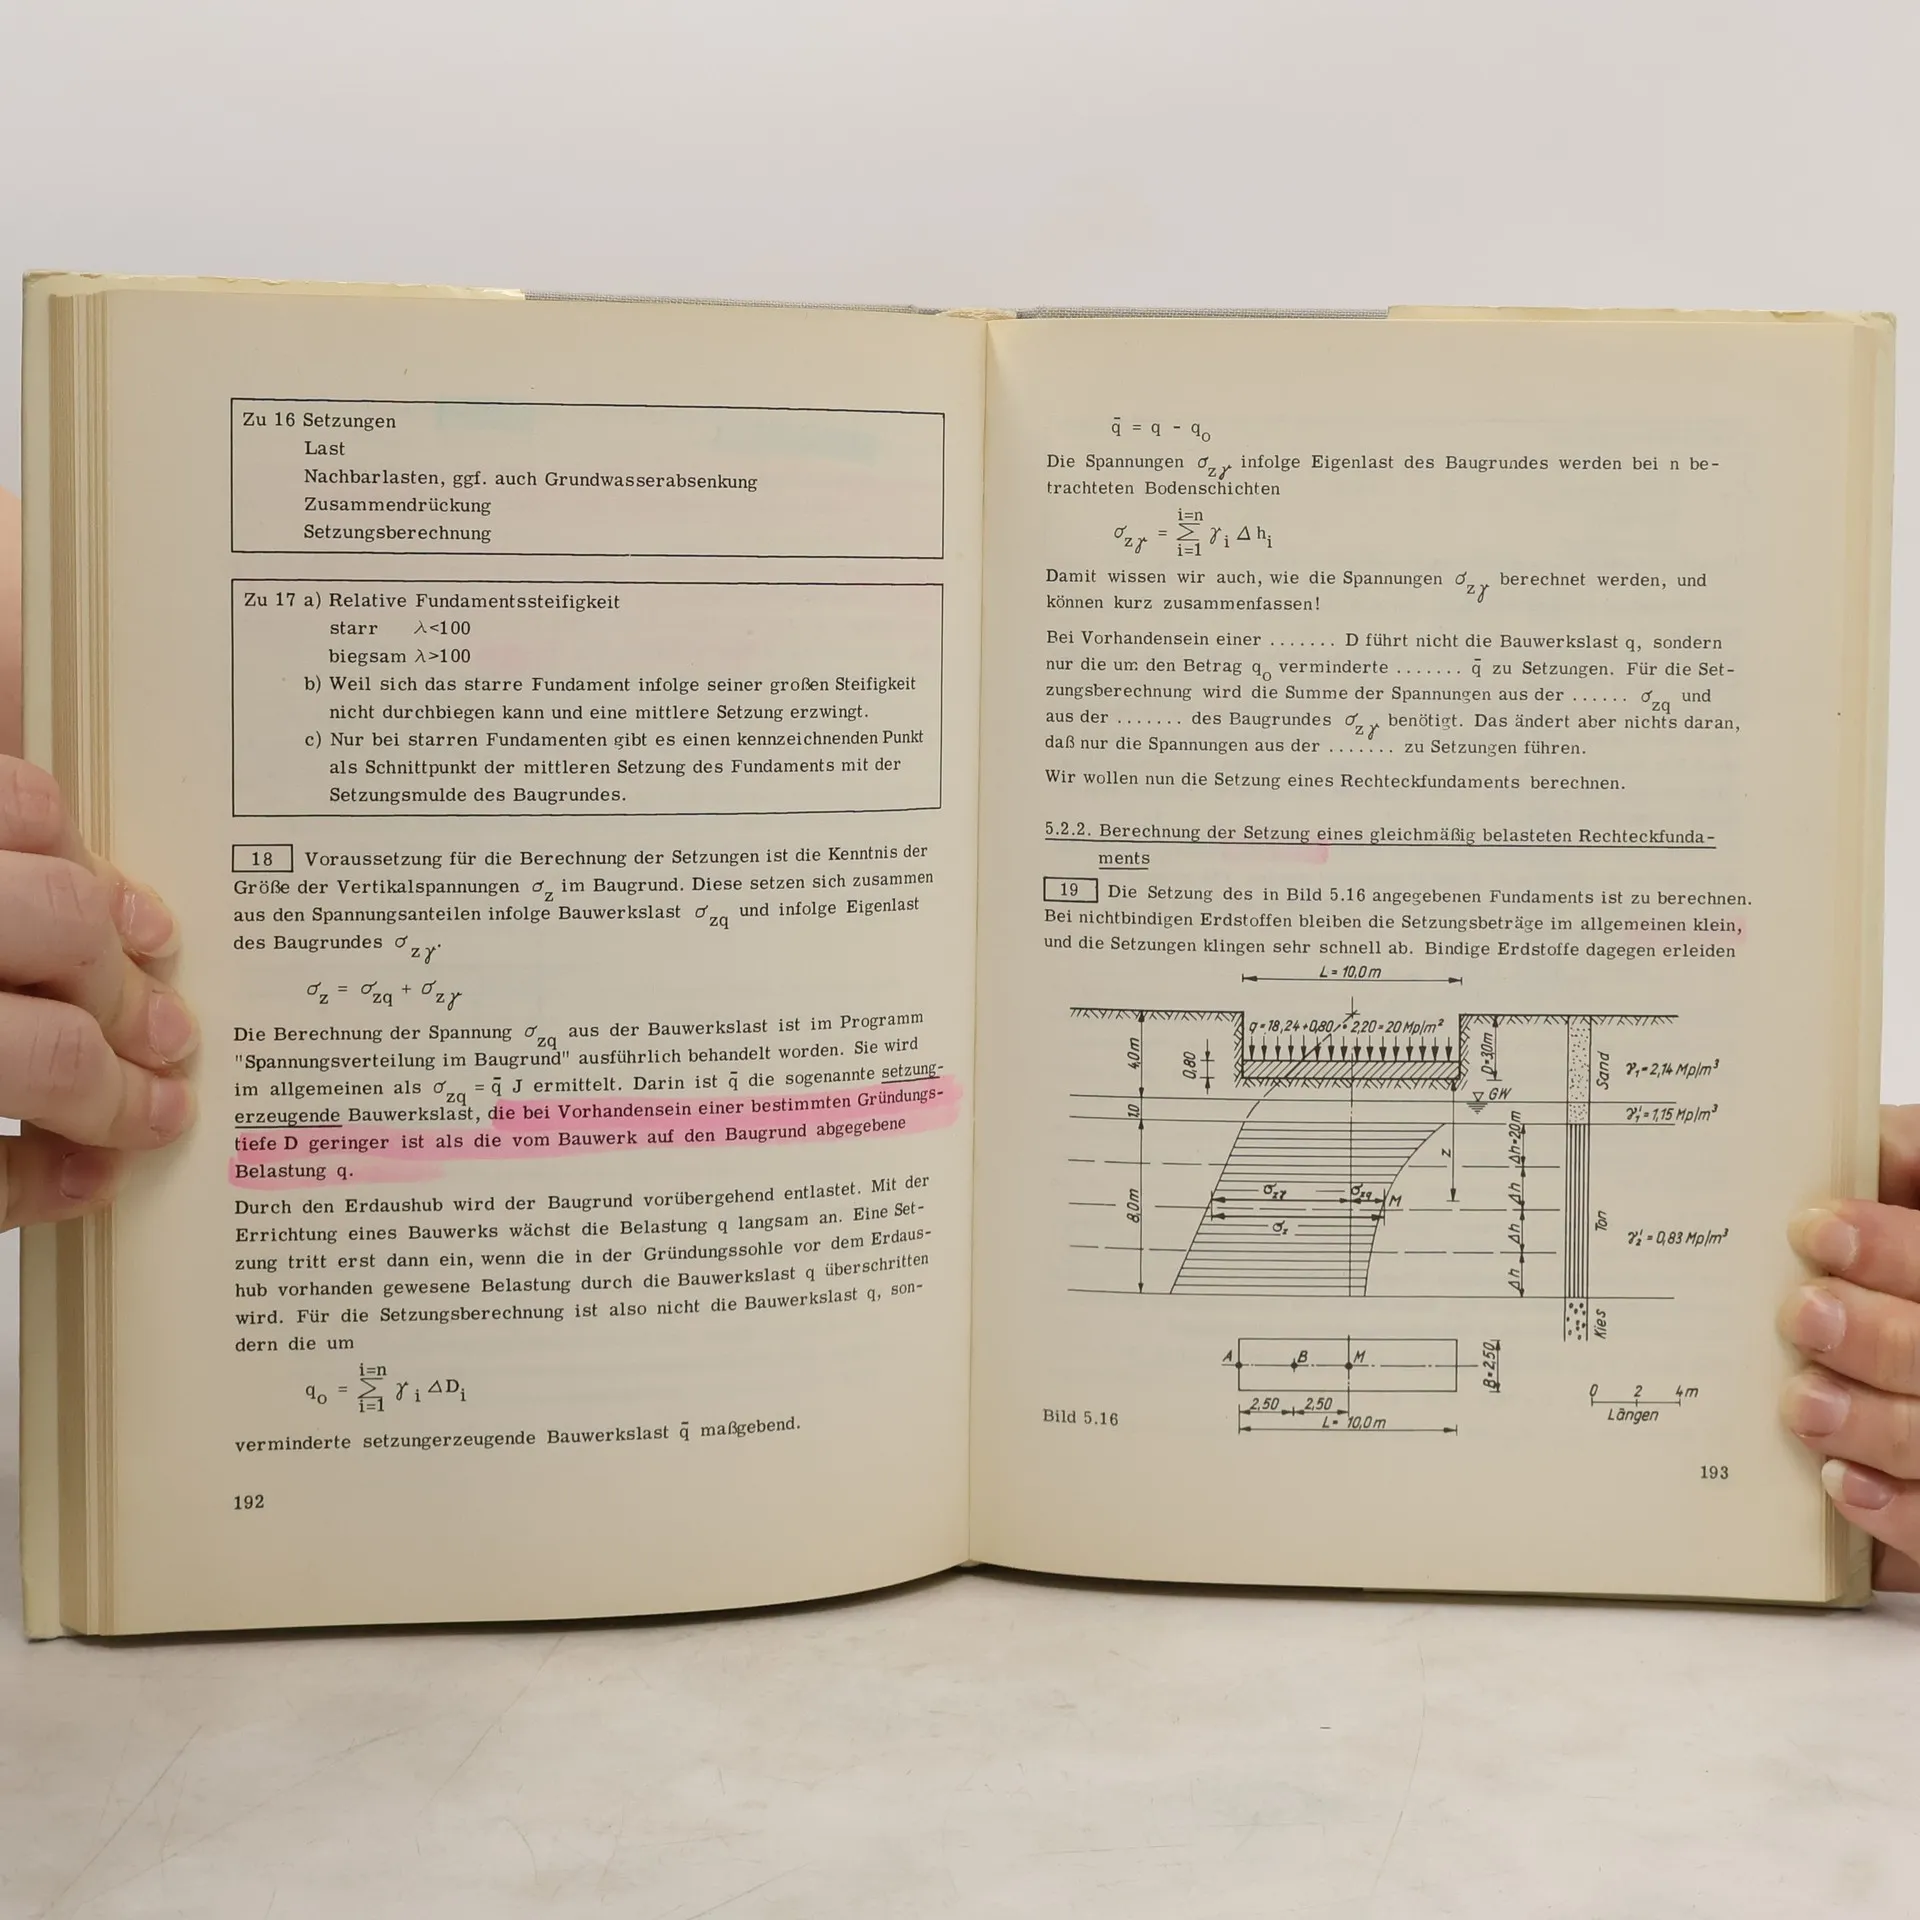 Zu 16 Setzungen
Last
Nachbarlasten, ggf. auch Grundwasserabsenkung
Zusammendrückung
Setzungsberechnung
Zu 17 a) Relative Fundamentssteifigkeit
starr λ<100
biegsam λ>100
b) Weil sich das starre Fundament infolge seiner großen Steifigkeit
nicht durchbiegen kann und eine mittlere Setzung erzwingt.
c) Nur bei starren Fundamenten gibt es einen kennzeichnenden Punkt
als Schnittpunkt der mittleren Setzung des Fundaments mit der
Setzungsmulde des Baugrundes.
18 Voraussetzung für die Berechnung der Setzungen ist die Kenntnis der
Größe der Vertikalspannungen σz im Baugrund. Diese setzen sich zusammen
aus den Spannungsanteilen infolge Bauwerkslast σzq und infolge Eigenlast
des Baugrundes σzγ.
σz = σzq + σzγ
Die Berechnung der Spannung σzq aus der Bauwerkslast ist im Programm
"Spannungsverteilung im Baugrund" ausführlich behandelt worden. Sie wird
im allgemeinen als σzq = q̄ J ermittelt. Darin ist q̄ die sogenannte setzung-
erzeugende Bauwerkslast, die bei Vorhandensein einer bestimmten Gründungs-
tiefe D geringer ist als die vom Bauwerk auf den Baugrund abgegebene
Belastung q.
Durch den Erdaushub wird der Baugrund vorübergehend entlastet. Mit der
Errichtung eines Bauwerks wächst die Belastung q langsam an. Eine Set-
zung tritt erst dann ein, wenn die in der Gründungssohle vor dem Erdaus-
hub vorhanden gewesene Belastung durch die Bauwerkslast q überschritten
wird. Für die Setzungsberechnung ist also nicht die Bauwerkslast q, son-
dern die um
i=n
qo = Σ γi ΔDi
i=1
verminderte setzungerzeugende Bauwerkslast q̄ maßgebend.
192
q̄ = q - qo
Die Spannungen σzγ infolge Eigenlast des Baugrundes werden bei n be-
trachteten Bodenschichten
i=n
σzγ = Σ γi Δhi
i=1
Damit wissen wir auch, wie die Spannungen σzγ berechnet werden, und
können kurz zusammenfassen!
Bei Vorhandensein einer ....... D führt nicht die Bauwerkslast q, sondern
nur die um den Betrag qo verminderte ....... q̄ zu Setzungen. Für die Set-
zungsberechnung wird die Summe der Spannungen aus der ...... σzq und
aus der ....... des Baugrundes σzγ benötigt. Das ändert aber nichts daran,
daß nur die Spannungen aus der ....... zu Setzungen führen.
Wir wollen nun die Setzung eines Rechteckfundaments berechnen.
5.2.2. Berechnung der Setzung eines gleichmäßig belasteten Rechteckfunda-
ments
19 Die Setzung des in Bild 5.16 angegebenen Fundaments ist zu berechnen.
Bei nichtbindigen Erdstoffen bleiben die Setzungsbeträge im allgemeinen klein,
und die Setzungen klingen sehr schnell ab. Bindige Erdstoffe dagegen erleiden
L = 10,0 m
q = 18,24 + 0,80 · 2,20 = 20 Mp/m²
4,0m
0,80
D=3,0m
Sand
γ1 = 2,14 Mp/m³
GW
1,0
γ1' = 1,15 Mp/m³
Δh=2,0m
z
σzγ
σzq
M
Δh
8,0m
σz
Δh
Ton
γ2' = 0,83 Mp/m³
Δh
Kies
A
B
M
B=2,50
2,50
2,50
L = 10,0m
0 2 4m
Längen
Bild 5.16
193